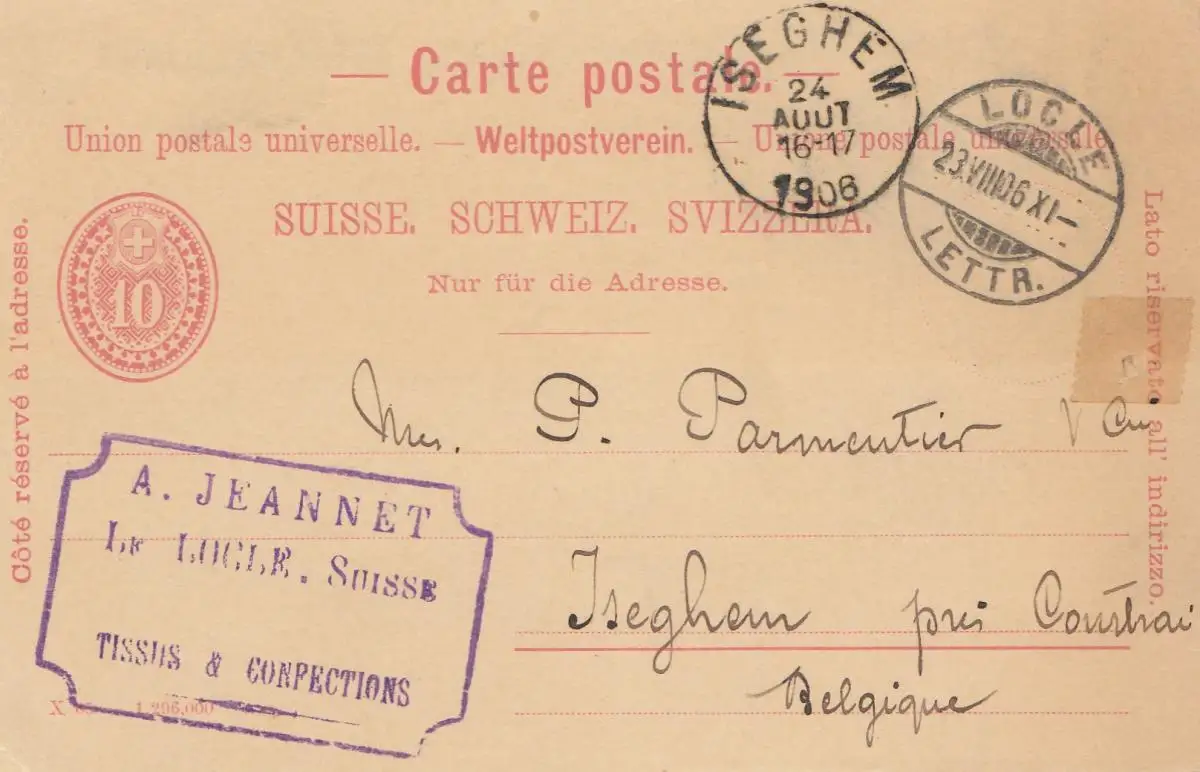 — Carte postale. —
Union postale universelle. — Weltpostverein. — Unione postale universale
SUISSE. SCHWEIZ. SVIZZERA.
Nur für die Adresse.
ISEGHEM
24
AOUT
16-17
1906
LOCLE
23.VIII.06.XI–
LETTR.
10
Côté réservé à l'adresse.
Lato riservato all' indirizzo.
P. Parmentier
Iseghem près Courtrai
Belgique
A. JEANNET
LE LOCLE. SUISSE
TISSUS & CONFECTIONS
1,296,000